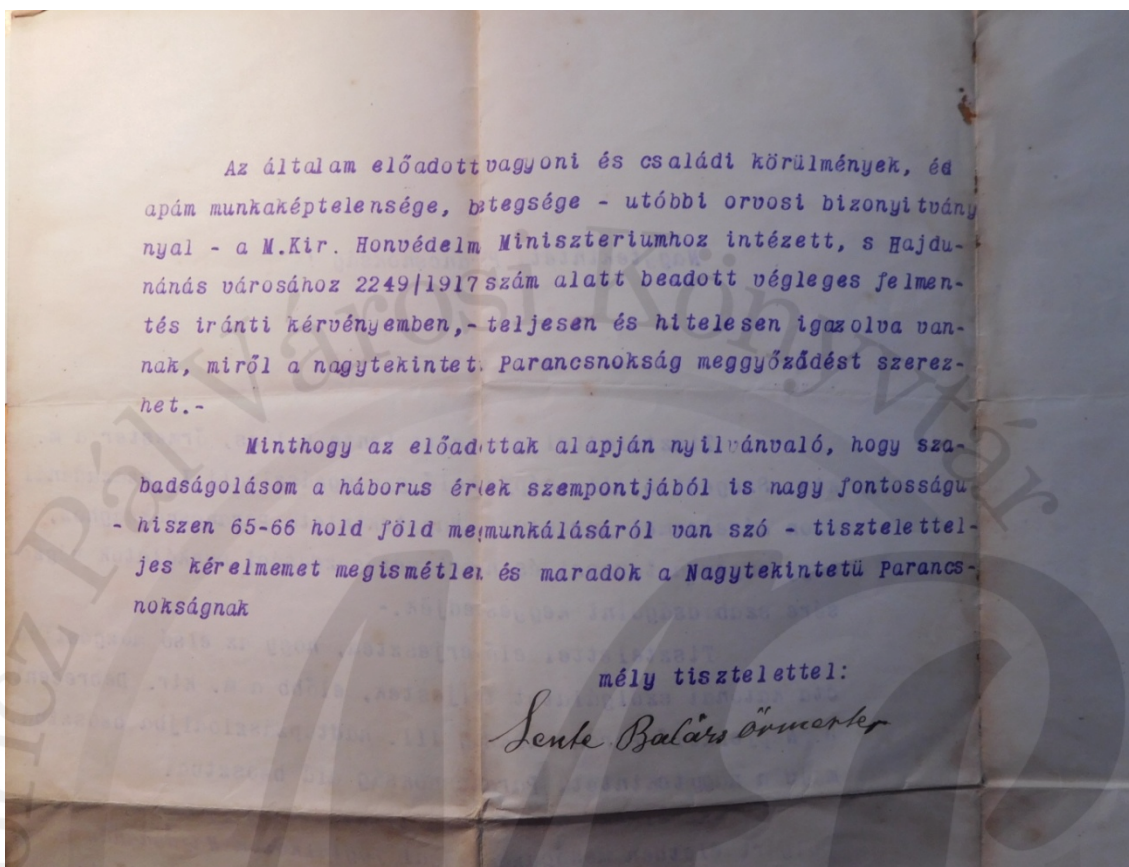 Az általam előadott vagyoni és családi körülmények, éd
apám munkaképtelensége, betegsége - utóbbi orvosi bizonyitvány
nyal - a M.Kir. Honvédelm Miniszteriumhoz intézett, s Hajdu-
nánás városához 2249/1917 szám alatt beadott végleges felmen-
tés iránti kérvényemben,- teljesen és hitelesen igazolva van-
nak, miről a nagytekintet. Parancsnokság meggyőződést szerez-
het.-
Minthogy az előadottak alapján nyilvánvaló, hogy sza-
badságolásom a háborus érdek szempontjából is nagy fontosságu
- hiszen 65-66 hold föld megmunkálásáról van szó - tisztelettel-
jes kérelmemet megismétlem és maradok a Nagytekintetü Parancs-
nokságnak
mély tisztelettel:
Lente Balázs őrmester
Pál Városi Könyvtár